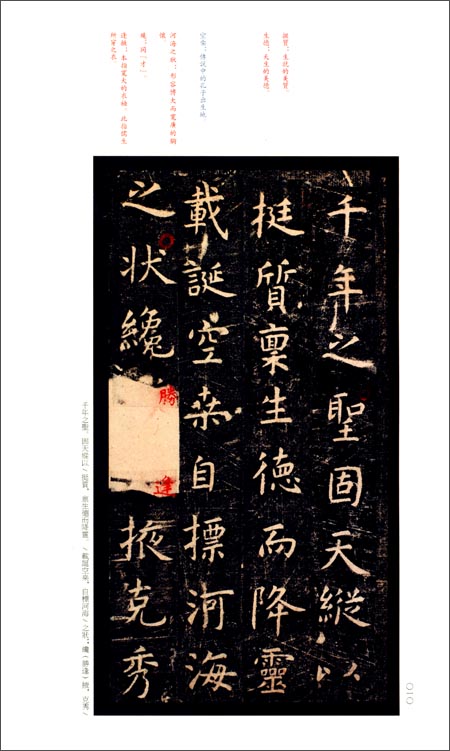 挺質：生就的美質。
生德：天生的美德。
空桑：傳說中的孔子出生地。
河海之狀：形容博大而寬廣的胸
懷。
纔：同「才」。
逢掖：本指寬大的衣袖，此指儒生
所穿之衣。
千年之聖固天縱以
挺質稟生德而降靈
載誕空桑自標河海
之狀纔勝逢掖克秀
千年之聖，固天縱以／挺質，稟生德而降靈。／載誕空桑，自標河海／之狀；纔（勝逢）掖，克秀／
〇一〇